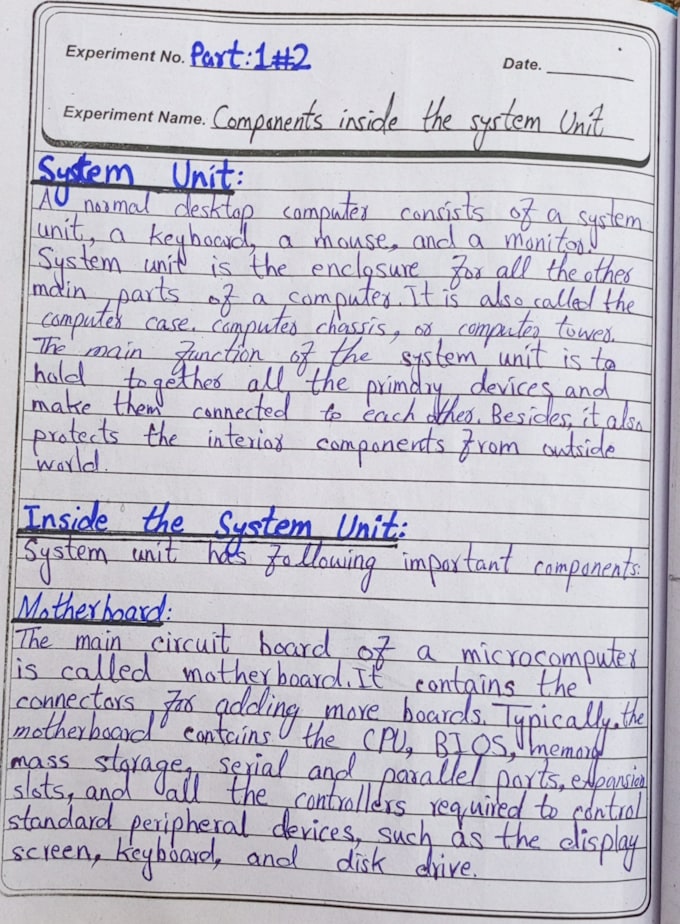 Experiment No. Part:1#2
Date.
Experiment Name. Components inside the system Unit
System Unit:
A normal desktop computer consists of a system
unit, a keyboard, a mouse, and a monitor.
System unit is the enclosure for all the other
main parts of a computer. It is also called the
computer case. computer chassis, or computer tower.
The main function of the system unit is to
hold together all the primary devices and
make them connected to each other. Besides, it also
protects the interior components from outside
world.
Inside the System Unit:
System unit has following important components:
Motherboard:
The main circuit board of a microcomputer
is called motherboard. It contains the
connectors for adding more boards. Typically, the
motherboard contains the CPU, BIOS, memory
mass storage, serial and parallel ports, expansion
slots, and all the controllers required to control
standard peripheral devices, such as the display
screen, keyboard, and disk drive.